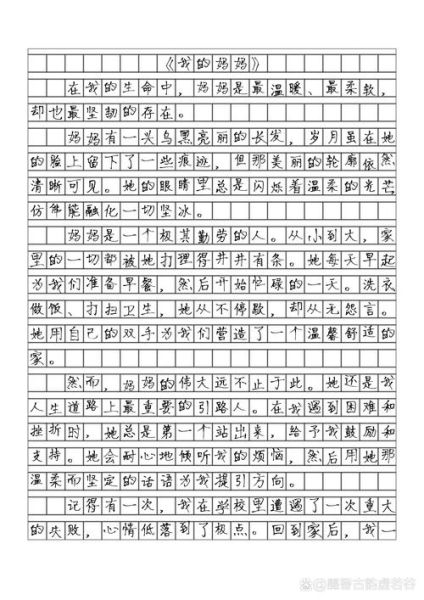 《我的妈妈》
在我的生命中，妈妈是最温暖、最柔软，
却也最坚韧的存在。
妈妈有一头乌黑亮丽的长发，岁月虽在她
的脸上留下了一些痕迹，但那美丽的轮廓依然
清晰可见。她的眼睛里总是闪烁着温柔的光芒，
仿佛能融化一切坚冰。
妈妈是一个极其勤劳的人。从小到大，家
里的一切都被她打理得井井有条。她每天早起
为我们准备早餐，然后开始忙碌的一天。洗衣、
做饭、打扫卫生，她从不停歇，却从无怨言。
她用自己的双手为我们营造了一个温馨舒适的
家。
然而，妈妈的伟大远不止于此。她还是我
人生道路上最重要的引路人。在我遇到困难和
挫折时，她总是第一个站出来，给予我鼓励和
支持。她会耐心地倾听我的烦恼，然后用她那
温柔而坚定的话语为我提引方向。
记得有一次，我在学校里遭遇了一次重大
的失败，心情低落到了极点。回到家后，我一
@魔晋古韵虚若谷